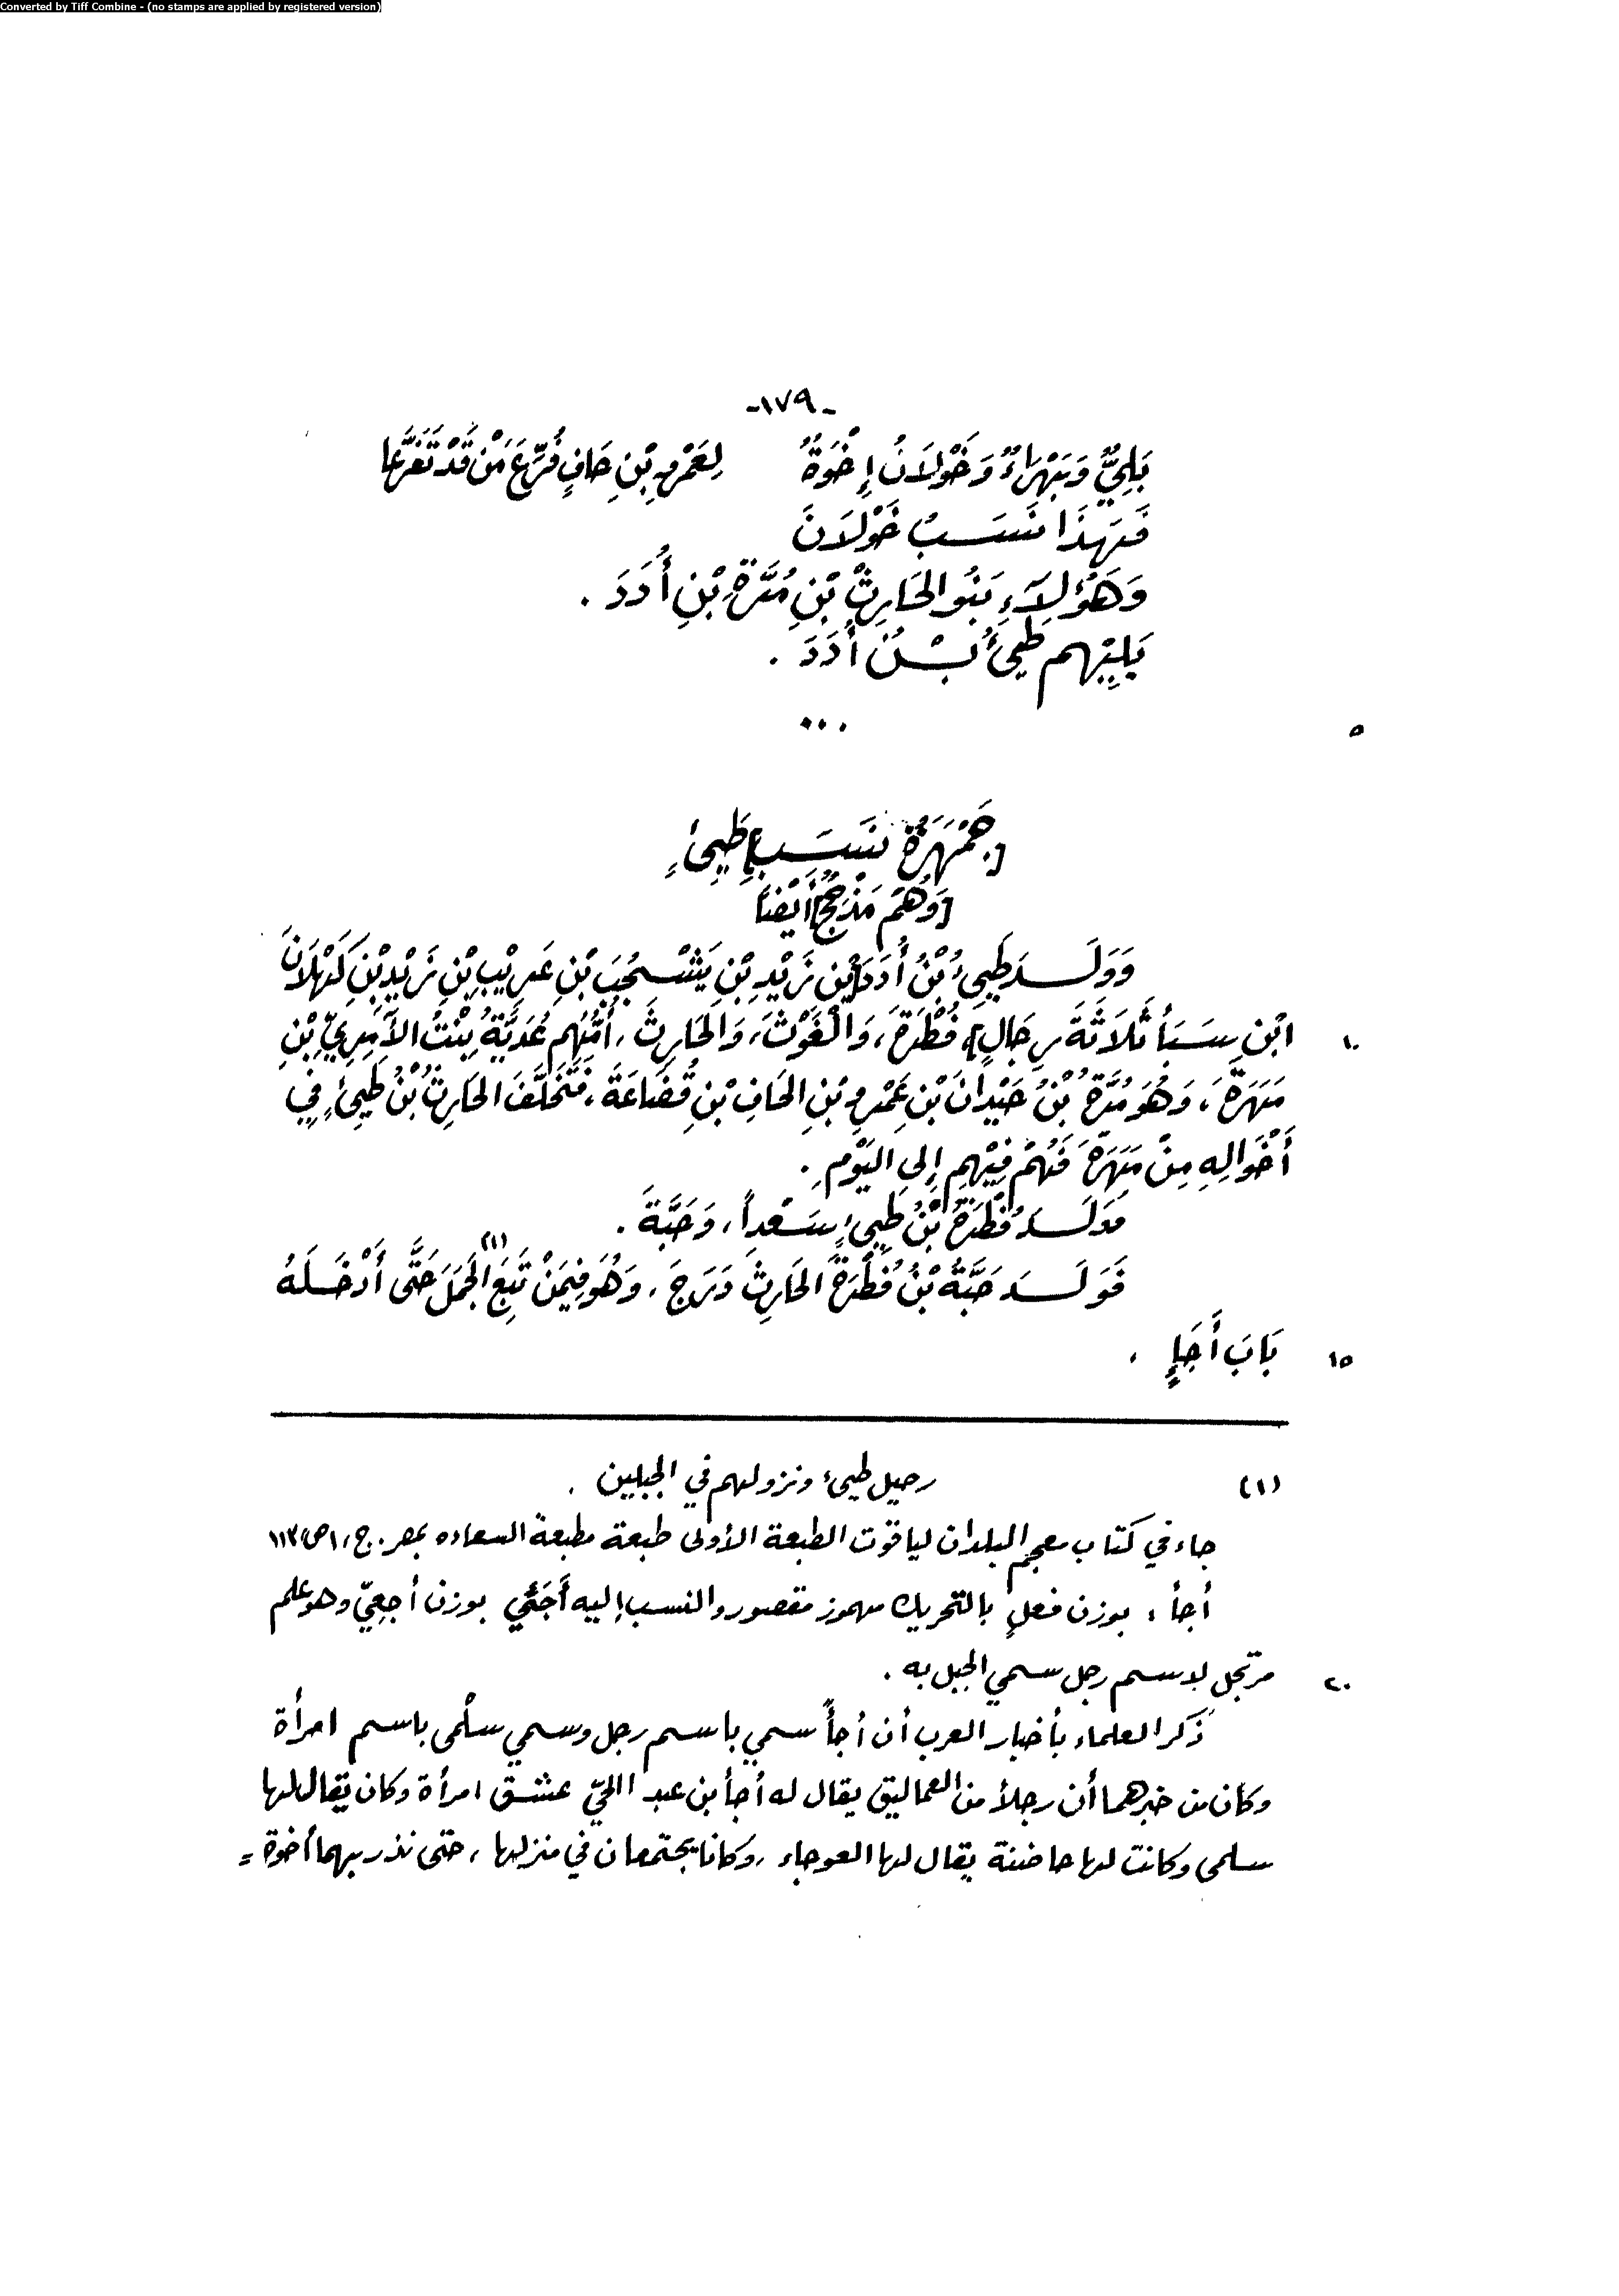 Converted by Tiff Combine - (no stamps are applied by registered version)
-١٧٩-
بَلِيٌّ وَبَهْرَاءٌ وَخَوْلَانُ إِخْوَةٌ لِعَمْرِو بْنِ حَافٍ فُرِّعَ مَنْ قَدْ تَفَرَّعا
فَهَذَا نَسَبُ خَوْلَانَ
وَهَؤُلَاءِ بَنُو الحَارِثِ بْنِ مُرَّةَ بْنِ أُدَدَ .
يَلِيْهِم طَيِّئُ بْنُ أُدَدَ .
...
٥
[جَمْهَرَةُ نَسَبِ] طَيِّئٍ
[وَهُمْ مَذْحِجُ] أَيْضاً
وَوَلَدَ طَيِّءُ بْنُ أُدَدَ [بْنِ زَيْدِ بْنِ يَشْجُبَ بْنِ عَرِيْبِ بْنِ زَيْدِ بْنِ كَهْلَانَ
١٠ ابْنِ سَبَأ ثَلَاثَةَ رِجَالٍ] فُطْرَةَ، وَالْغَوْثَ، وَالحَارِثَ، أُمُّهُم عُدَيَّةُ بِنْتُ الآمِرِيِّ بْنِ
مَهَرَةَ، وَهُوَ مُرَّةُ بْنُ حَيْدَانَ بْنِ عَمْرِو بْنِ الحَافِ بْنِ قُضَاعَةَ، فَتَخَلَّفَ الحَارِثُ بْنُ طَيِّئٍ فِي
أَخْوَالِهِ مِنْ مَهَرَةَ فَهُمْ فِيْهِم إلى اليَوْمِ .
فوَلَدَ فُطْرَةُ بْنُ طَيِّئٍ سَعْداً، وَحَبَّةَ .
فَوَلَدَ حَبَّةُ بْنُ فُطْرَةَ الحَارِثَ دَرَجَ، وَهُوَ فِيمَنْ تَبِعَ الجَمَلَ(١) حَتَّى أَدْخَلَهُ
١٥ بَابَ أَجَإٍ .
(١) رحيل طيئ ونزولهم في الجبلين .
جاء في كتاب معجم البلدان لياقوت الطبعة الأولى طبعة مطبعة السعاده بمصر. ج، ١ ص، ١١٣
أجأ : بوزن فعلٍ بالتحريك مهموز مقصور والنسب إليه أَجَئِي بوزن أجعِيّ وهو علم
٢٠ مرتجل لاسم رجل سمي الجبل به .
ذكر العلماء بأخبار العرب أن أجأً سمي باسم رجل وسمي سلْمى باسم امرأة
وكان من خبرهما أن رجلاً من العماليق يقال له أجأ بن عبد الحيّ عشق امرأة وكان يقال لها
سلمى وكانت لها حاضنة يقال لها العوجاء، وكانا يجتمعان في منزلها، حتى نذر بهما أخوة =